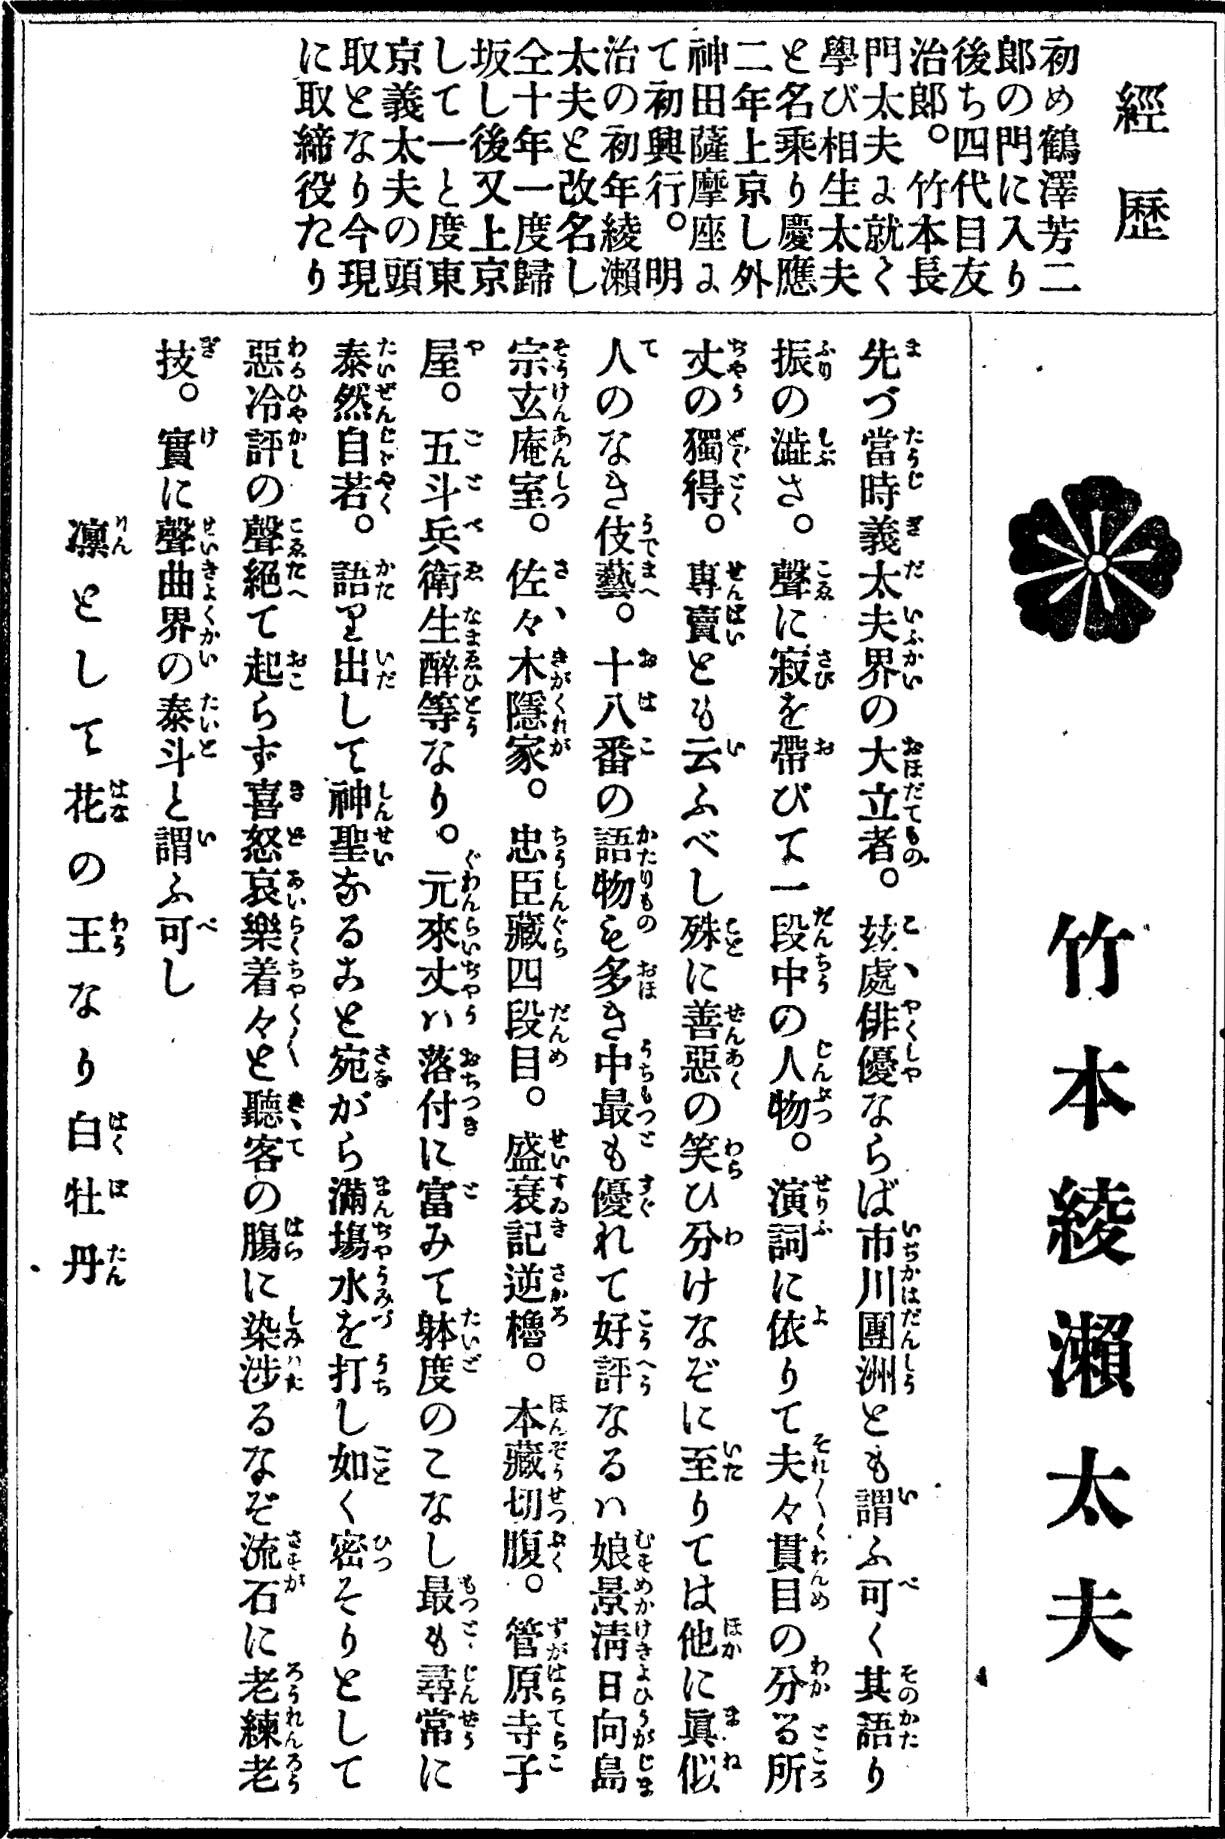 經歷
初め鶴澤芳二
郎の門に入り
後ち四代目友
治郎。竹本長
門太夫に就て
學び相生太夫
と名乘り慶應
二年上京し外
神田薩摩座に
て初興行。明
治の初年綾瀨
太夫と改名し
仝十年一度歸
坂し後又上京
して一と度東
京義太夫の頭
取となり今現
に取締役たり
竹本綾瀨太夫
先づ當時義太夫界の大立者。玆處俳優ならば市川團洲とも謂ふ可く其語り
振の澁さ。聲に寂を帶びて一段中の人物。演詞に依りて夫々貫目の分る所
丈の獨得。專賣とも云ふべし殊に善惡の笑ひ分けなぞに至りては他に眞似
人のなき伎藝。十八番の語物も多き中最も優れて好評なるハ娘景淸日向島
宗玄庵室。佐々木隱家。忠臣藏四段目。盛衰記逆櫓。本藏切腹。管原寺子
屋。五斗兵衛生醉等なり。元來丈ハ落付に富みて躰度のこなし最も尋常に
泰然自若。語り出して神聖なること宛がら滿塲水を打し如く密そりとして
惡冷評の聲絕て起らず喜怒哀樂着々と聽客の膓に染渉るなぞ流石に老練老
技。實に聲曲界の泰斗と謂ふ可し
凛として花の王なり白牡丹